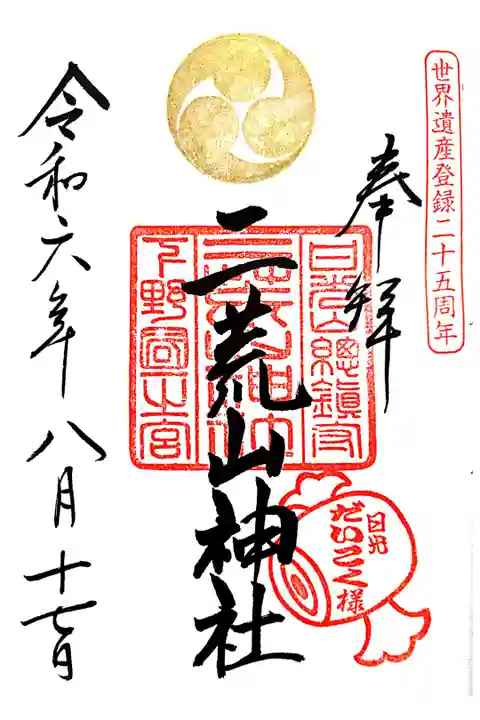 世界遺産登録二十五周年
奉拝
日光山總鎮守
二荒山神社
下野國一之宮
日光
だいこく様
二荒山神社
令和六年八月十七日